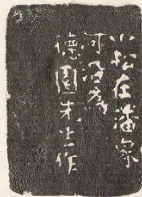 小松在潘家
河為
德園先生作